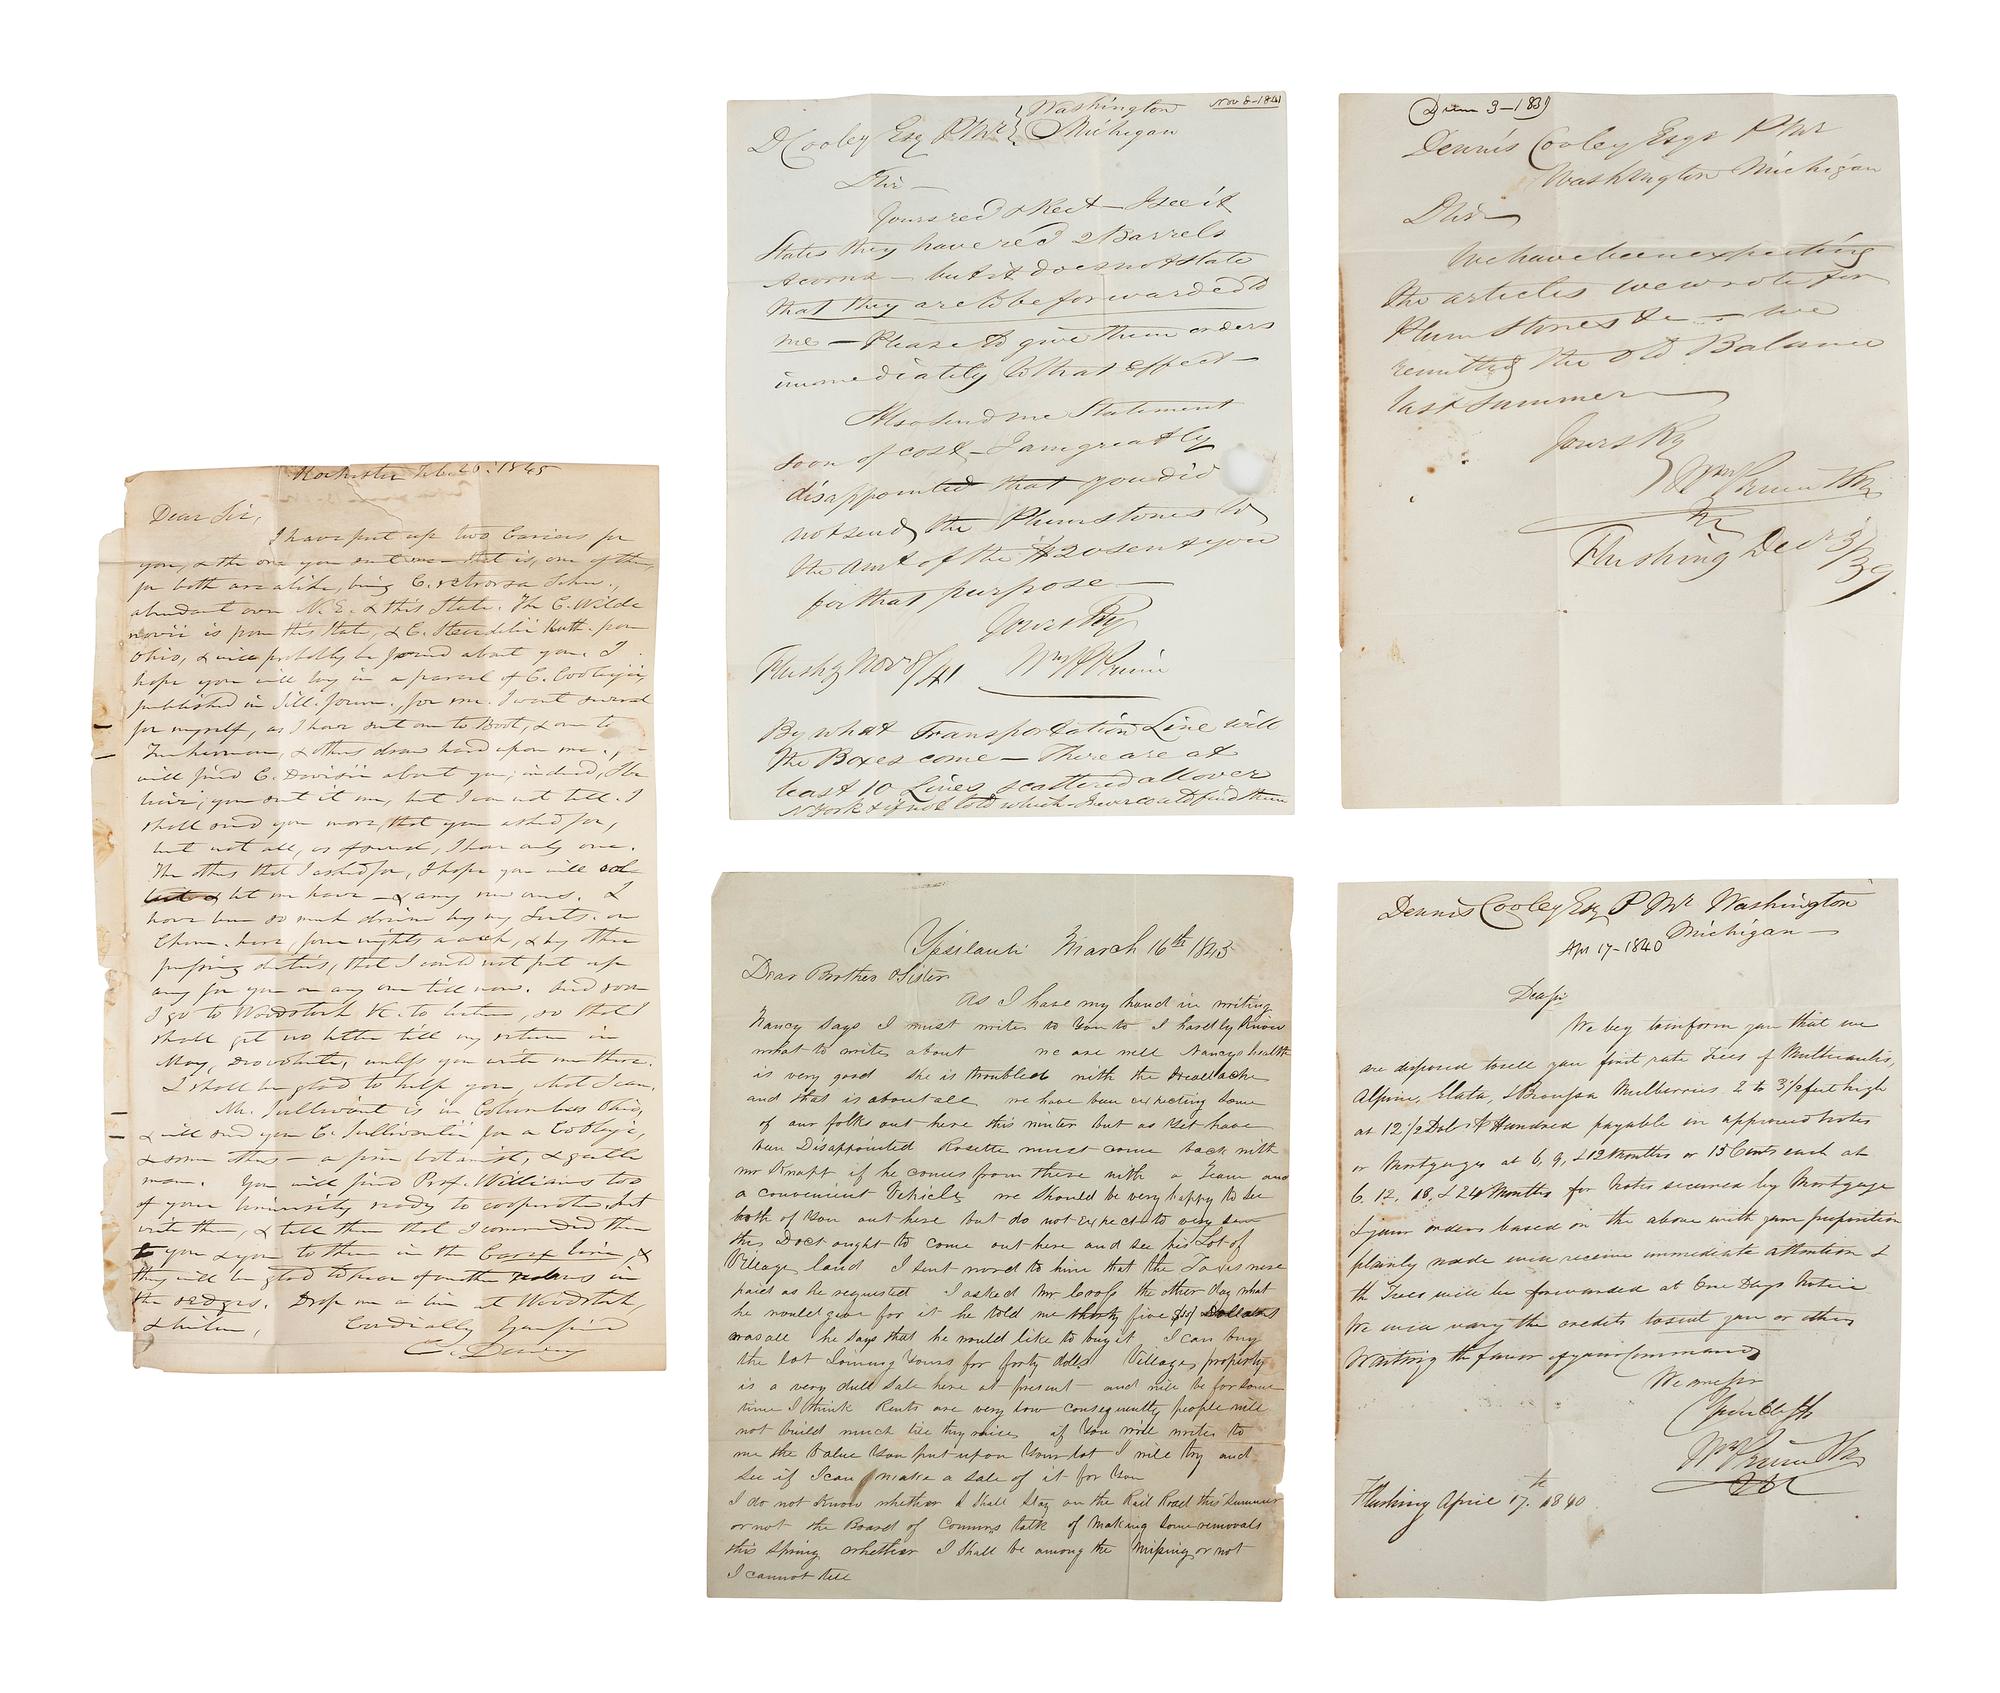 Rochester Feb. 20. 1845
Dear Sir,
I have put up two Carices for
you, & the one you sent me that is, one of them,
for both are alike, being C. retrorsa Schw.,
abundant over N.E. & this State. The C. Wilde
novii is from this State, & C. Steudelii Kunth. from
Ohio, & will probably be found about you. I
hope you will lay in a parcel of C. Cooleyii
published in Sill. Journ., for me. I want several
for myself, as I have sent one to Boott, & one to
Tuckerman, & others draw hard upon me.
will find C. Davisii about you; indeed, I be
lieve, you sent it me, but I can not tell. I
shall send you more, that you asked for,
but not all, as of several, I have only one.
The others that I asked for, I hope you will col-
lect & let me have — & any new ones. I
have been so much driven by my Lects. on
Chem. here, four nights a week, & by other
pressing duties, that I could not put up
any for you or any one till now. And soon
I go to Woodstock Vt. to lecture, so that I
shall get no letter till my return in
May, unless you write me there.
I shall be glad to help you, what I can.
Mr. Sullivant is in Columbus Ohio,
& will send you C. Sullivantii for a Cooleyii,
& some others — a fine botanist, & gentle
man. You will find Prof. Williams too
of your University ready to cooperate, but
write them, & tell them that I commended them
to you & you to them in the Carex line, &
they will be glad to hear of in
the sedges. Drop me a line at Woodstock,
Cordially Your friend
C. Dewey
Nov 8-1841
Washington
D Cooley Esq P Mr Michigan
Sir —
Yours recd & Rect — I see it
States they have recd 2 Barrels
Acorns — but it does not state
that they are to be forwarded to
me — Please to give them orders
immediately to that effect —
Also send me Statement
soon of cost — I am greatly
disappointed that you did
not send the Plumstones to
the amt of the $20 sent you
for that purpose —
Yours Ry
Flushg Nov 8/41 Wm R Prince
By what Transportation Line will
the Boxes come — There are at
least 10 Lines scattered all over
N York & if not told which I never could find them
Dennis Cooley Esqr P Mr
Washington Michigan
Sir —
We have been expecting
the articles we wrote for
Plum Stones &c — we
remitted the old Balance
last summer
Yours Ry
Wm Prince
Flushing Decr 3/39
Ypsilanti March 16th 1843
Dear Brother & Sister
As I have my hand in writing
Nancy says I must write to You to I hardly know
what to write about we are well Nancys health
is very good she is troubled with the
and that is about all we have been expecting some
of our folk out here this winter but as Yet have
been Disappointed Rosette must come back with
mr Knapp if he comes from there with a Team and
a convenient Vehicle we should be very happy to see
both of You out here but do not expect to very soon
the Doct ought to come out here and see his Lot of
Village land I sent word to him that the Taxes were
paid as he requested I asked Mr Cross the other day what
he would give for it he told me thirty five $35 Dollars
was all he says that he would like to buy it I can buy
the lot Joining Yours for forty dolls Village property
is a very dull sale here at present and will be for some
time I think Rents are very low consequently people will
not build much till they raise if You will write to
me the Value You put upon Your lot I will try and
see if I can make a sale of it for You
I do not know whether I Shall Stay on the Rail Road this summer
or not the Board of Commrs talk of making some removals
this spring whether I Shall be among the missing or not
I cannot tell
Dennis Cooley Esq P Mr Washington
Michigan —
Apr 17-1840
Dear sir
We beg to inform you that we
are disposed to sell you first rate Trees of Multicaulis,
Alpine, Elata, & Broussa Mulberries 2 to 3 1/2 feet high
at 12 1/2 Dols Pr Hundred payable in approved Notes
or Mortgages at 6, 9, & 12 Months or 15 Cents each at
6. 12. 18. & 24 Months for Notes secured by Mortgage
& your orders based on the above with your proposition
plainly made will receive immediate attention &
the Trees will be forwarded at One Days Notice
We will vary the credits to suit you or others
Waiting the favor of your Commands
We are Sir
Wm Prince
Flushing April 17th 1840